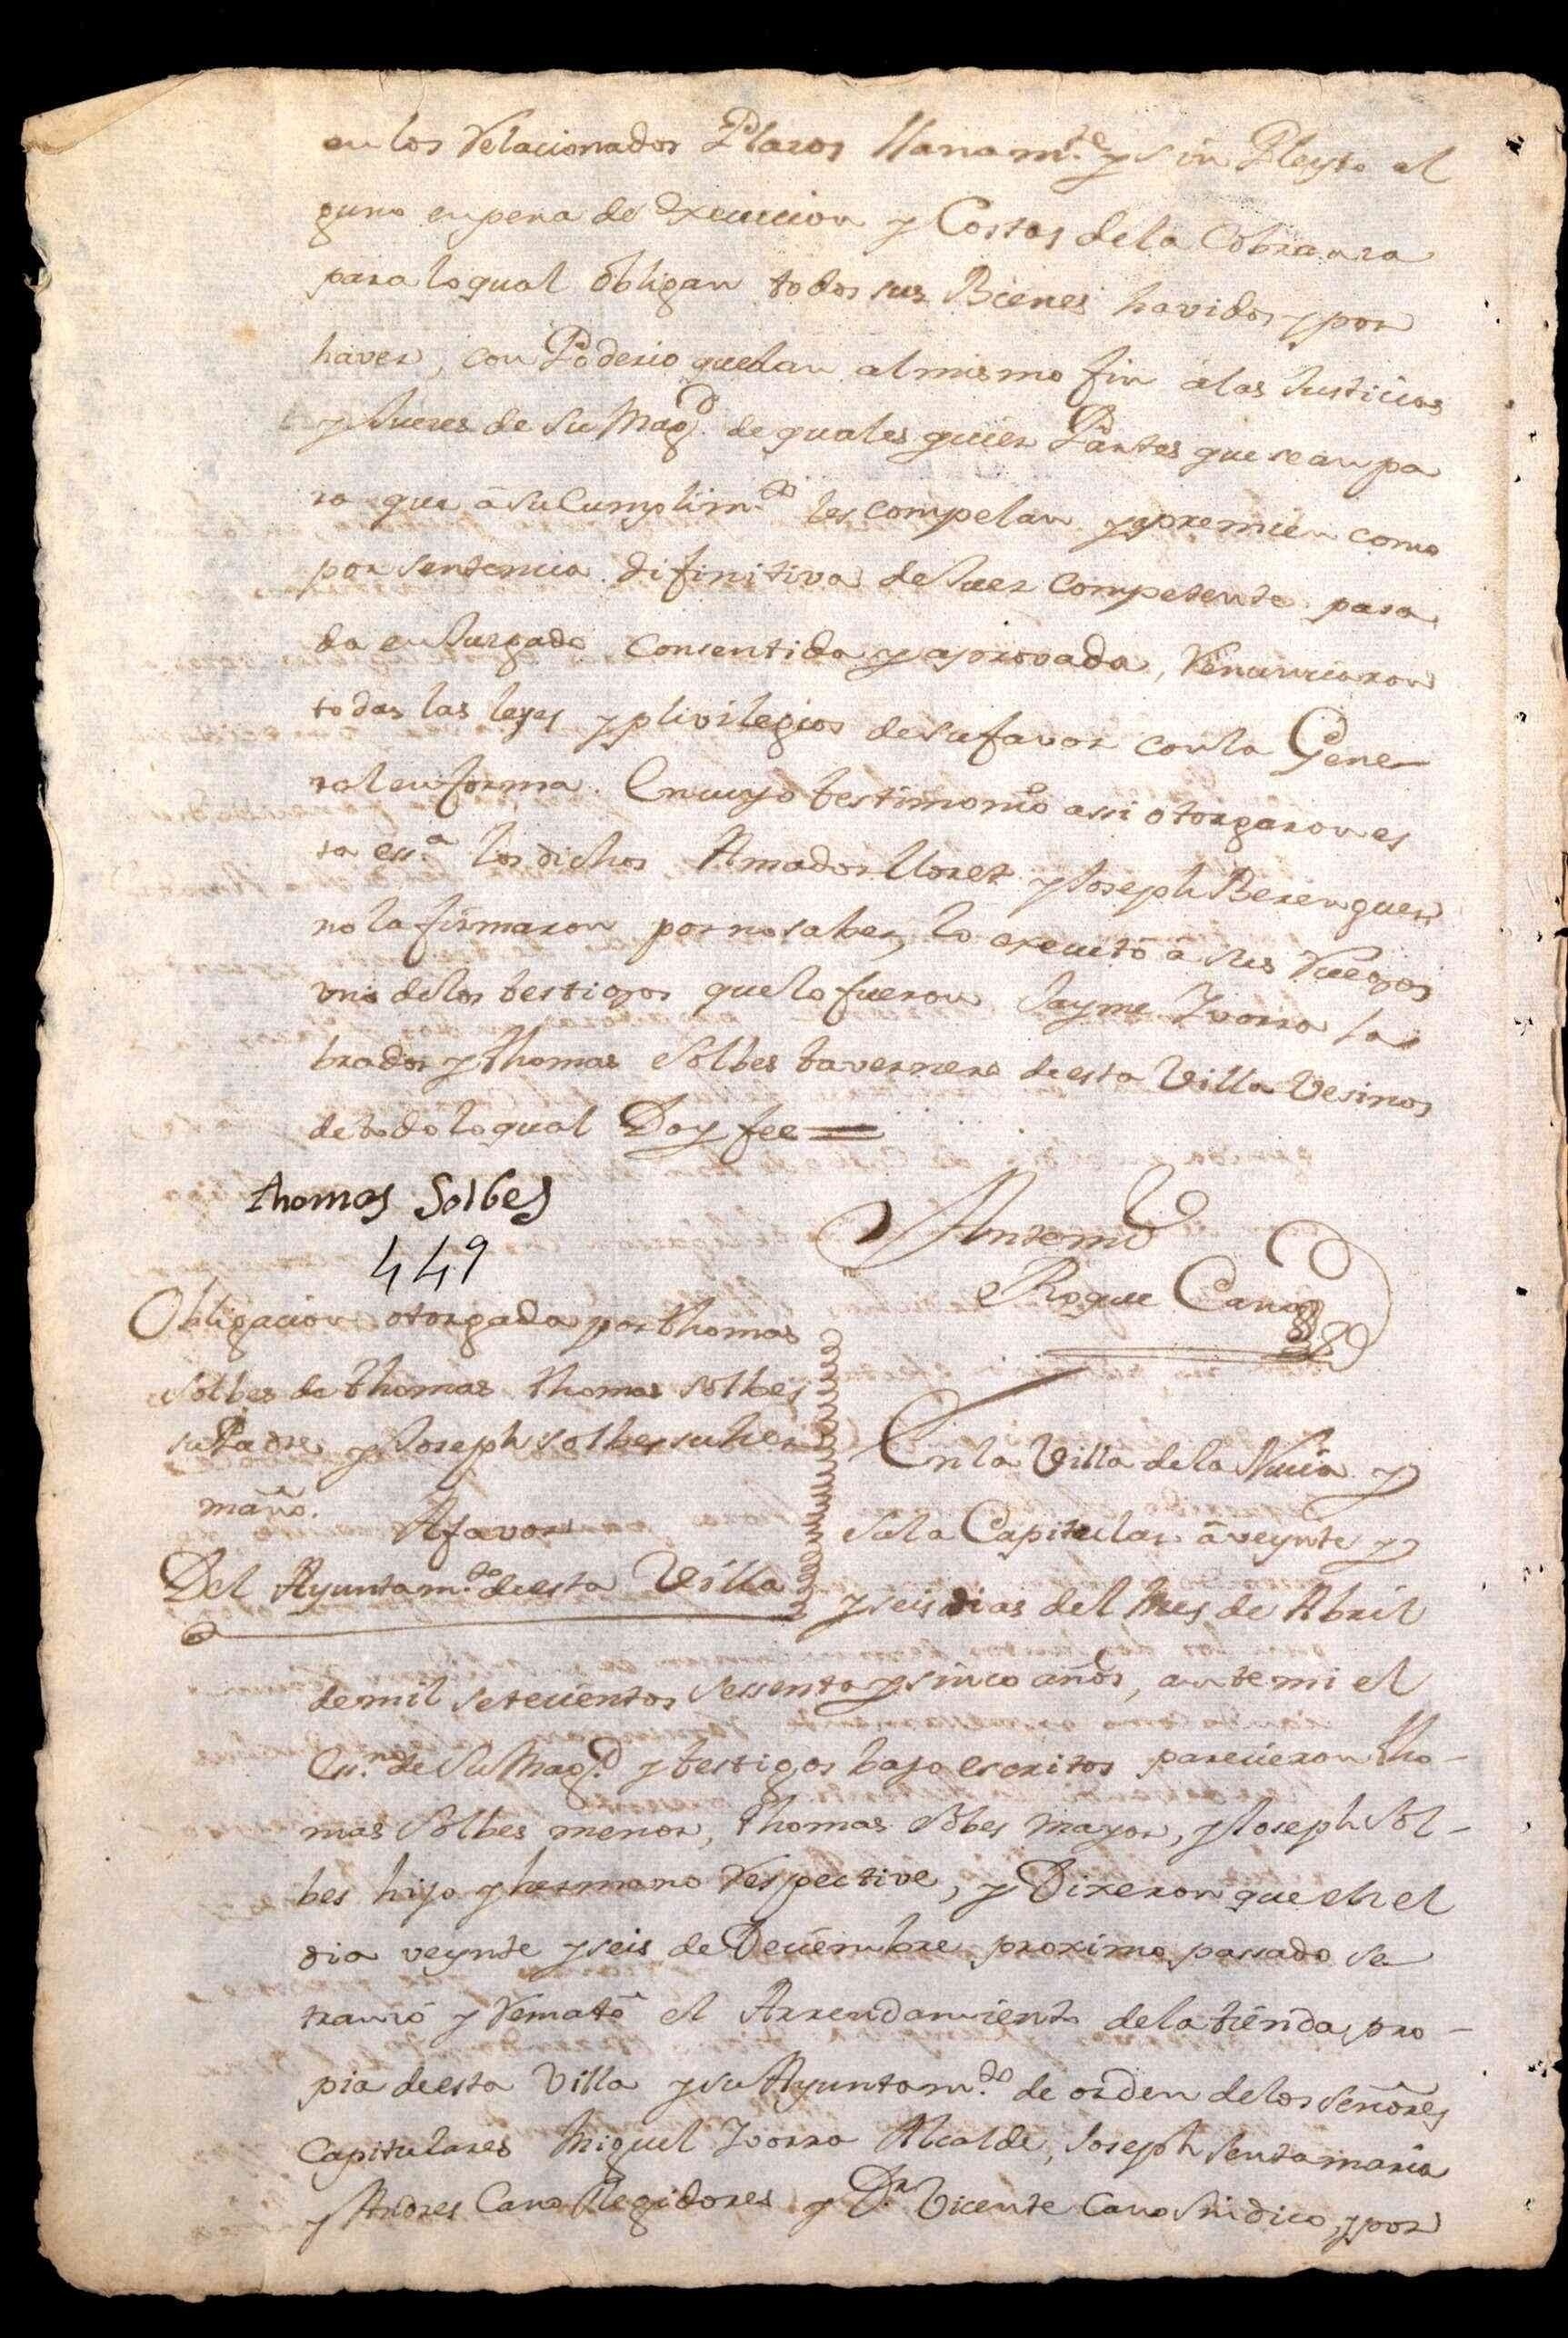 en los Relacionados Plazos llanam.te y sin Pleyto al
guno en pena de Execucion y Costas de la Cobranza
para lo qual obligan todos sus Bienes havidos y por
haver, con Poderio que dan al mismo fin á las Justicias
y Jueces de Su Mag.d de quales quier Partes que sean pa
ra que á su Cumplim.to les compelan y apremien como
por sentencia difinitiva de Juez Competente pasa
da en Juzgado Consentida y aprovada, Renunciaron
todas las leyes y plivilegios de su favor con la Gene-
ral en forma. En cuyo testimonio assi otorgaron es
ta ess.a los dichos Amador Lloret y Joseph Berenguer
no la firmaron por no saber, lo executó á sus Ruegos
uno de los testigos que lo fueron Jayme Ivorra La
brador y Thomas Solbes tavernero de esta Villa Vesinos
de todo lo qual Doy fee =
thomas Solbes
Antemi
449
Roque Cano
Obligacion otorgada por thomas
Solbes de thomas thomas Solbes
su Padre y Joseph Solbes su her
mano. A favor
Del Ayuntam.to de esta Villa
En la Villa de la Nucia y
Sala Capitular á veynte y
y seis dias del Mes de Abril
de mil setecientos sessenta y sinco años, ante mi el
Ess.no de Su Mag.d y testigos bajo escritos parecieron tho-
mas Solbes menor, thomas Sobes mayor, y Joseph Sol-
bes hijo y hermano Respective, y Dixeron que en el
dia veynte y seis de Deciembre proximo passado se
tranzó y Remató el Arrendamiento de la tienda pro-
pia de esta Villa y su Ayuntam.to de orden de los Señores
Capitulares Miguel Ivorra Alcalde, Joseph Sentamaria
y Andres Cano Regidores y D.n Vicente Cano Sindico, y por